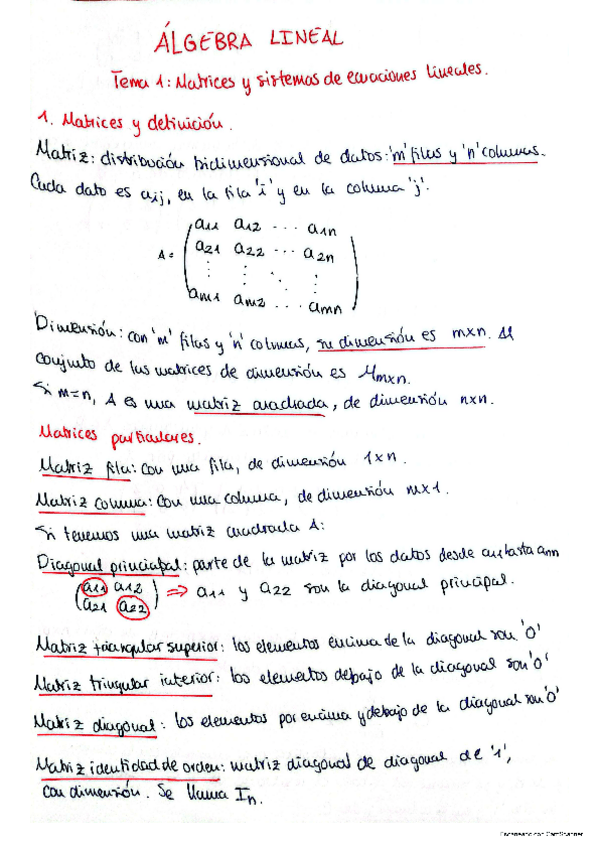 ÁLGEBRA LINEAL
Tema 1: Matrices y sistemas de ecuaciones lineales.
1. Matrices y definición.
Matriz: distribución bidimensional de datos: 'm' filas y 'n' columnas.
Cada dato es aij, en la fila 'i' y en la columna 'j'.
a11 a12 ... a1n
A = a21 a22 ... a2n
⋮ ⋮ ⋱ ⋮
am1 am2 ... amn
Dimensión: con 'm' filas y 'n' columnas, su dimensión es mxn. Al
conjunto de las matrices de dimensión es Mmxn.
Si m=n, A es una matriz cuadrada, de dimensión nxn.
Matrices particulares.
Matriz fila: con una fila, de dimensión 1xn.
Matriz columna: con una columna, de dimensión mx1.
Si tenemos una matriz cuadrada A:
Diagonal principal: parte de la matriz por los datos desde a11 hasta ann
(a11 a12
a21 a22) ⇒ a11 y a22 son la diagonal principal.
Matriz triangular superior: los elementos encima de la diagonal son '0'
Matriz triangular inferior: los elementos debajo de la diagonal son '0'
Matriz diagonal: los elementos por encima y debajo de la diagonal son '0'
Matriz identidad de orden: matriz diagonal de diagonal de '1',
con dimensión. Se llama In.
Escaneado con CamScanner